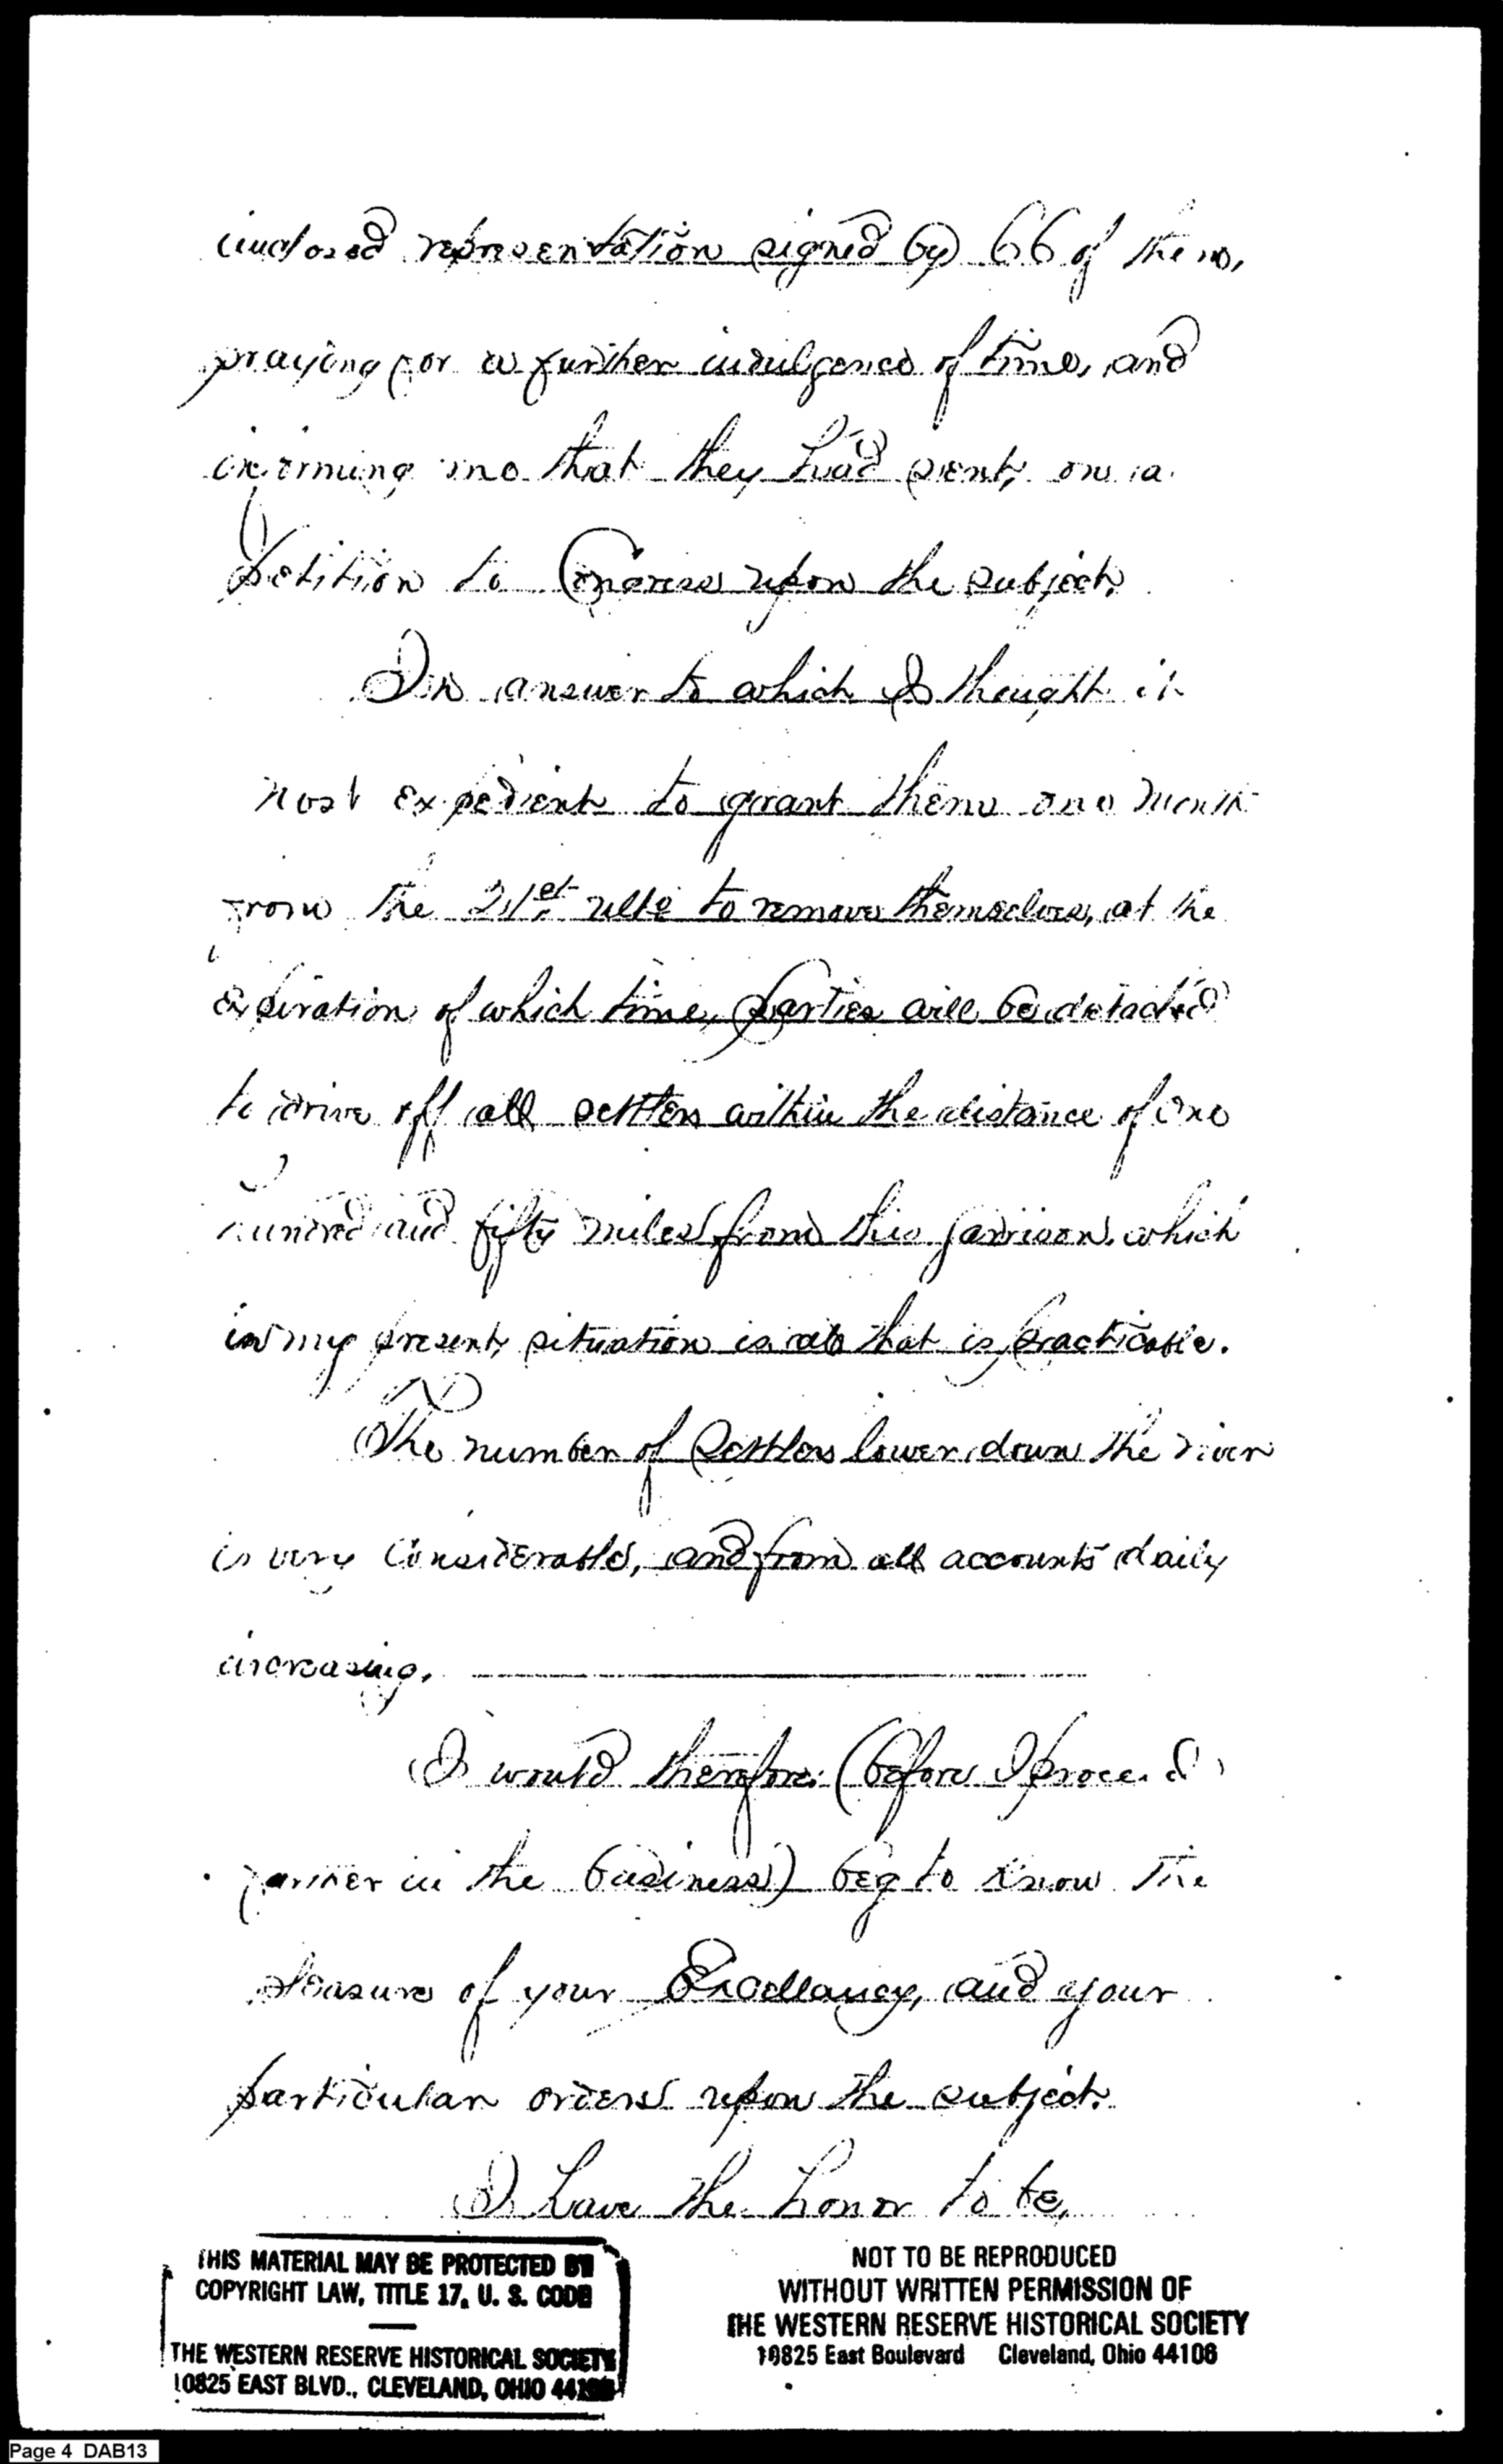 inclosed representation signed by 66 of them,
praying for a further indulgence of time, and
informing me that they had sent, on a
petition to Congress upon the subject.
In answer to which I thought it
most expedient to grant them one month
from the 21st ulto to remove themselves, at the
expiration of which time, parties will be detached
to drive off all settlers within the distance of one
hundred and fifty miles from this garrison, which
in my present situation is all that is practicable.
The number of settlers lower down the river
is very considerable, and from all accounts daily
increasing.
I would therefore (before I proceed
farther in the business) beg to know the
pleasure of your Excellancy, and your
particular orders upon the subject.
I have the honor to be,
THIS MATERIAL MAY BE PROTECTED BY
COPYRIGHT LAW, TITLE 17, U. S. CODE
THE WESTERN RESERVE HISTORICAL SOCIETY
10825 EAST BLVD., CLEVELAND, OHIO 44106
NOT TO BE REPRODUCED
WITHOUT WRITTEN PERMISSION OF
THE WESTERN RESERVE HISTORICAL SOCIETY
10825 East Boulevard Cleveland, Ohio 44106
Page 4 DAB13